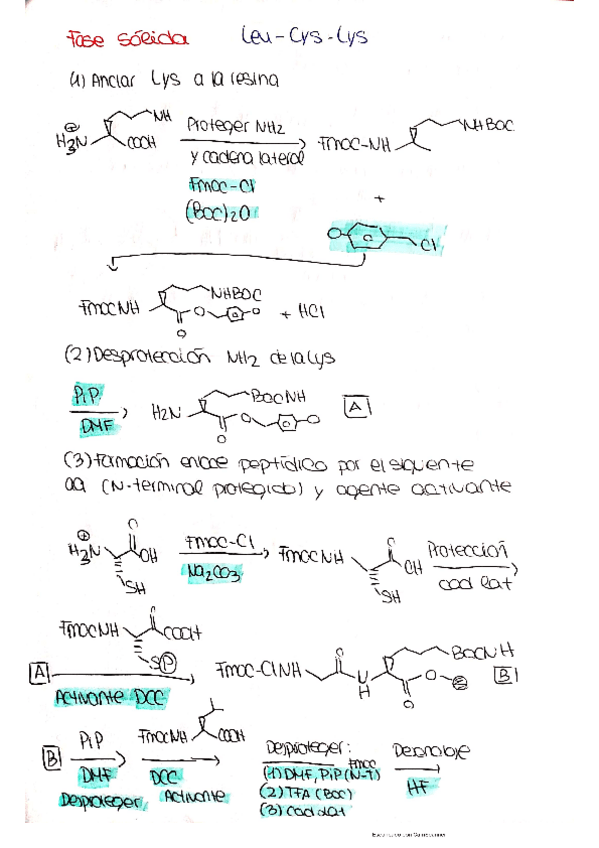 Fase sólida Leu-Cys-Lys
(1) Anclar Lys a la resina
H3N NH COOH Proteger NH2 y cadena lateral Fmoc-NH NHBOC
Fmoc-Cl
(BOC)2O
+
Cl
FmocNH NHBOC O O + HCl
(2) Desprotección NH2 de la Lys
PiP
DMF H2N BOCNH O O A
(3) Formación enlace peptídico por el siguiente
aa (N-terminal protegido) y agente activante
H3N O OH SH Fmoc-Cl Na2CO3 FmocNH O OH SH Protección cad lat
FmocNH O COOH SP
A Activante DCC Fmoc-ClNH O N H O O BOCNH B
B PiP DMF FmocNH COOH DCC Desproteger: Desanclaje
Desproteger Activante (1) DMF, PiP (N-T) Fmoc HF
(2) TFA (BOC)
(3) Cad lat
Escaneado con CamScanner